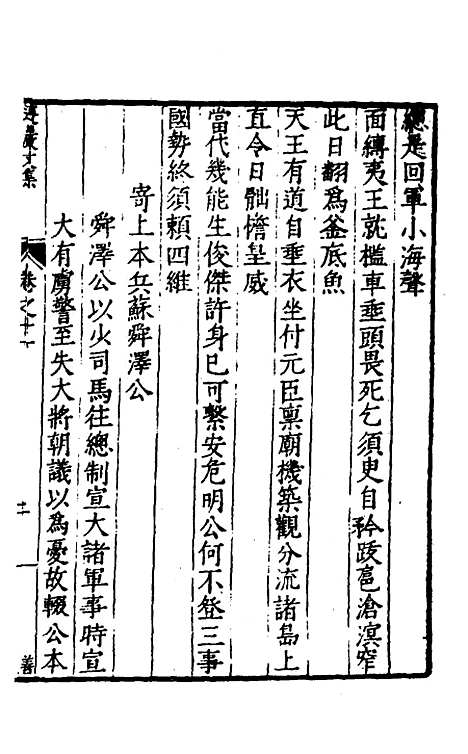 總是回軍小海聲
面縛夷王就檻車垂頭畏死乞須臾自矜跋扈滄溟窄
此日翻爲釜底魚
天王有道自垂衣坐付元臣稟廟機築觀分流諸島上
直令日䵝憺皇威
當代幾能生俊傑許身已可繫安危明公何不登三事
國勢終須賴四維
寄上本兵蘇舜澤公
舜澤公以少司馬往總制宣大諸軍事時宣
大有虜警至失大將朝議以為憂故輟公本
遵巖文集
卷之
善